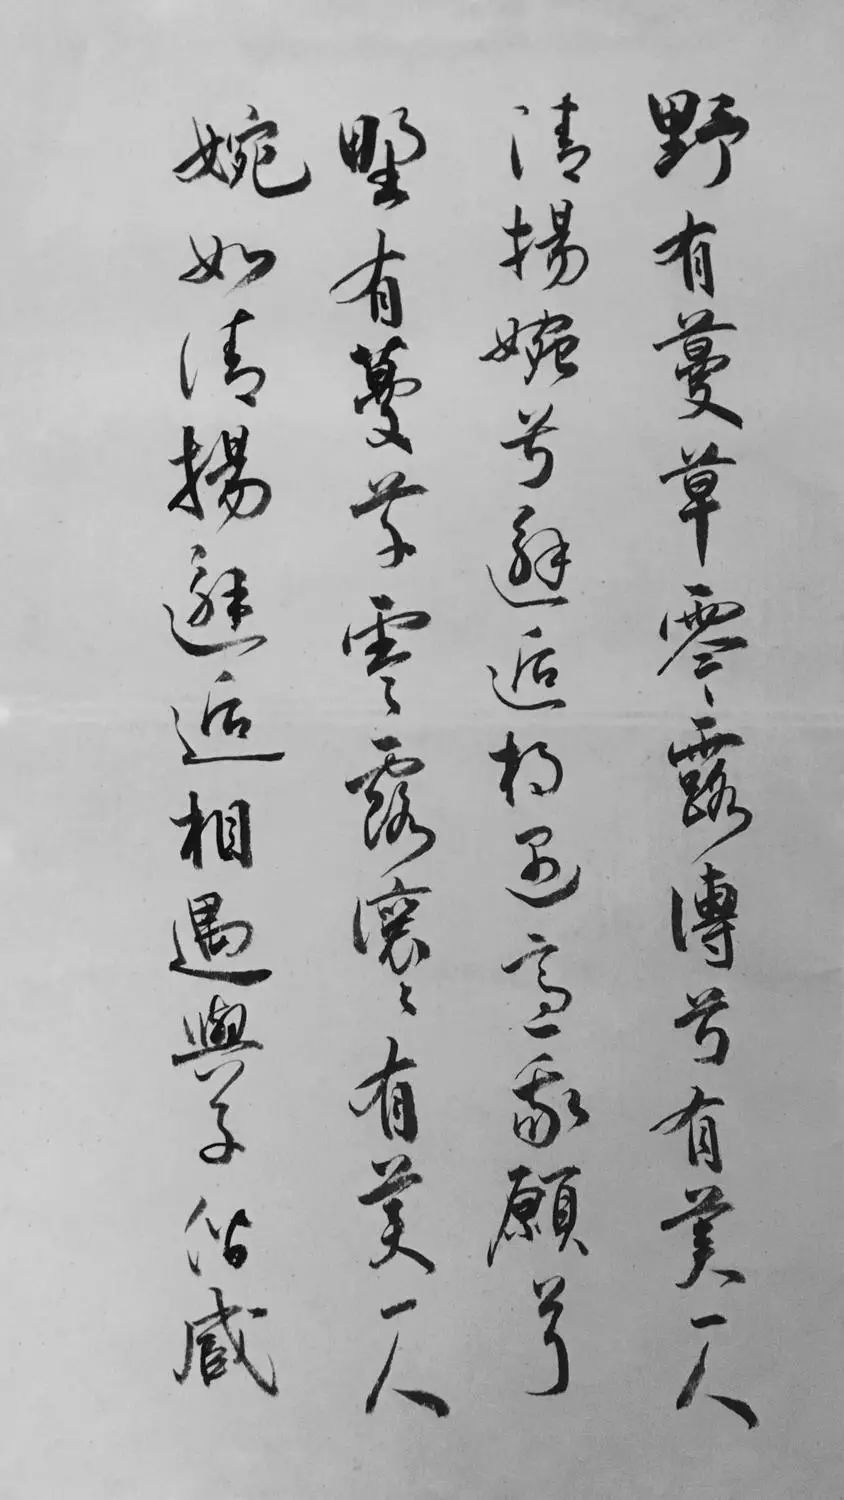 野有蔓草零露漙兮有美一人
清揚婉兮邂逅相遇適我願兮
野有蔓草零露瀼瀼有美一人
婉如清揚邂逅相遇與子偕臧